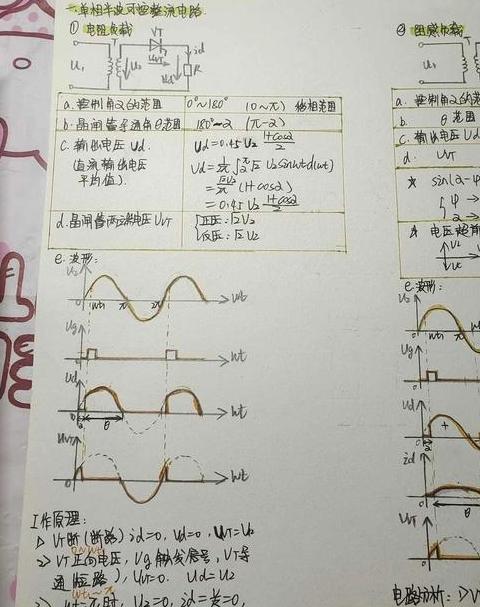 一.单相半波可控整流电路.
① 电阻负载
T
VT
id
U₁
U₂
UVT
Ud
R
a. 控制角α的范围 0°~180° (0~π) 移相范围
b. 晶闸管导通角θ范围 180°-α (π-α)
c. 输出电压 Ud. Ud=0.45U₂ (1+cosα)/2
(直流输出电压 Ud=1/2π ∫ √2 U₂sinwtd(wt)
平均值). = √2U₂/2π (1+cosα)
= 0.45U₂ (1+cosα)/2
d.晶闸管两端电压UVT {正压:√2U₂
反压:√2U₂
e. 波形:
U₂
0 wt₁ π 2π wt
Ug
0 wt
Ud
0 α θ wt
UVT
0 wt
工作原理:
1> VT断(断路) id=0, Ud=0, UVT=U₂
0~wt₁
2> VT正向电压, Ug触发信号, VT导
通(短路), UVT=0. Ud=U₂
wt₁~π
3> wt=π时, U₂=0, id=
② 阻感负载
T
U₁
a. 控制角α的范
b. θ范围
c. 输出电压 Ud
d. UVT
* sin(α-φ
{φ →
α →
* 电压超前
e. 波形:
U₂
0 wt₁ π
Ug
0
Ud
0 α +
id
0 θ
UVT
0
电路分析: 1> V